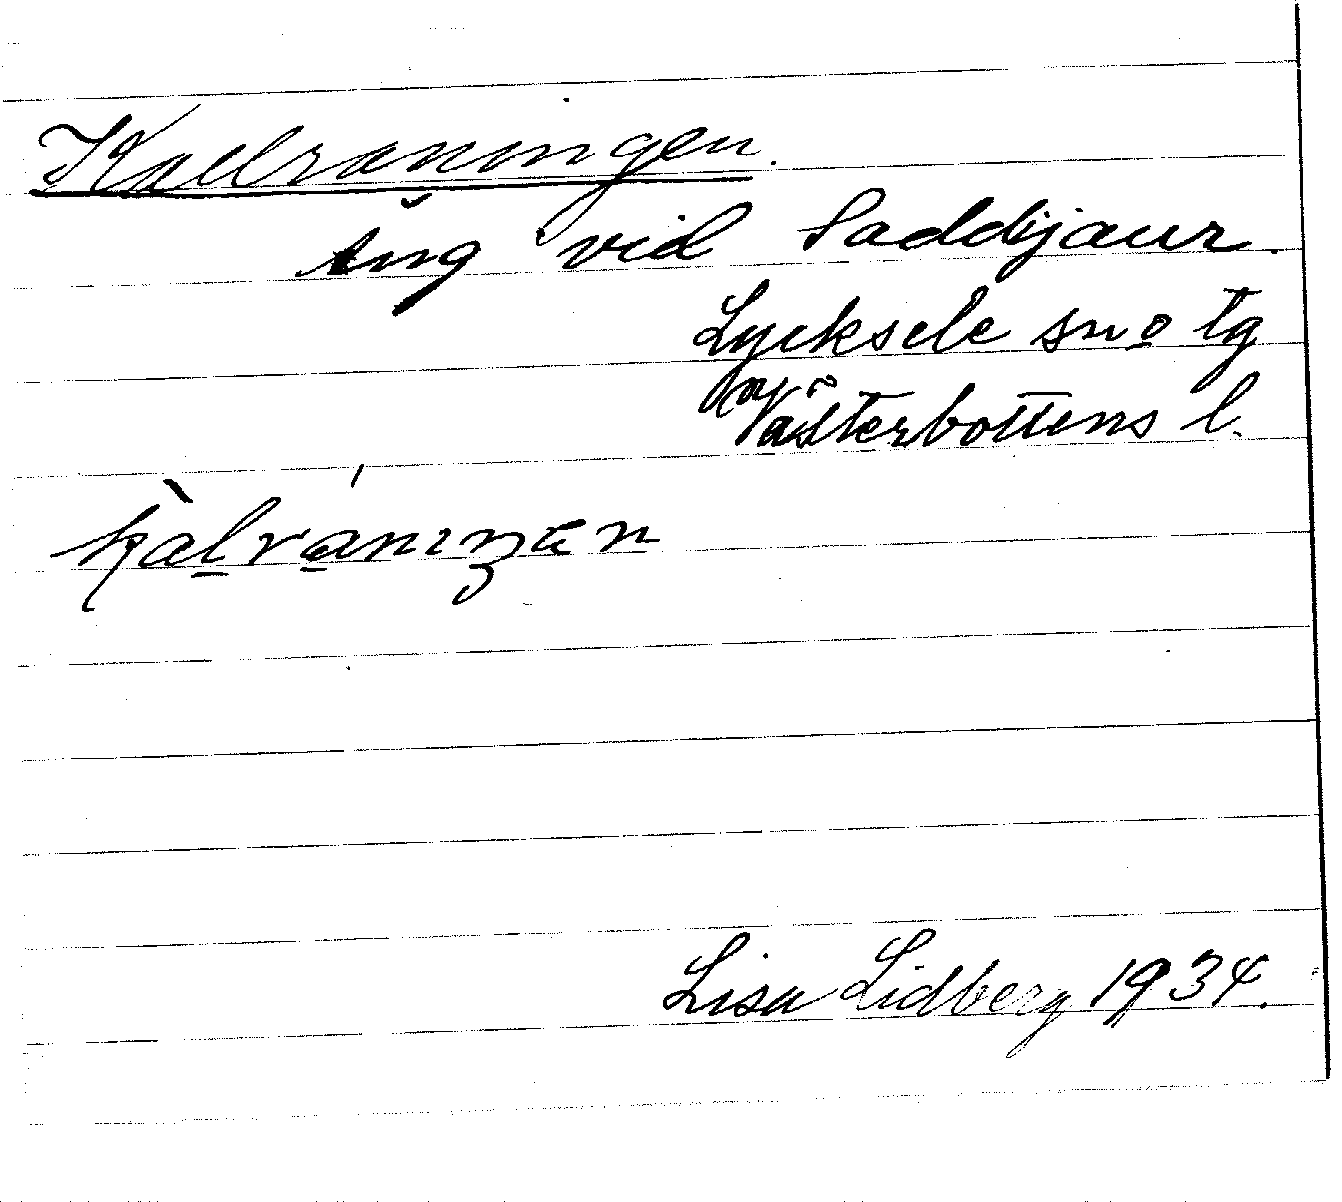 Kallraningen.
Äng vid Saddijaur.
Lycksele sn o tg
Västerbottens l.
kàlrániŋən
Lisa Lidberg 1934.